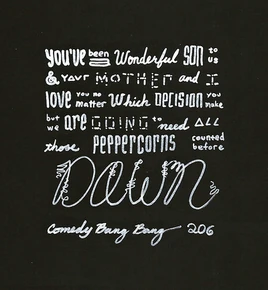 you've been Wonderful SON to us
& your MOTHER and I
love you no matter Which DECISION you make
but we are GOING to need ALL
those PEPPERCORNS counted before
DAWN
Comedy Bang Bang 206